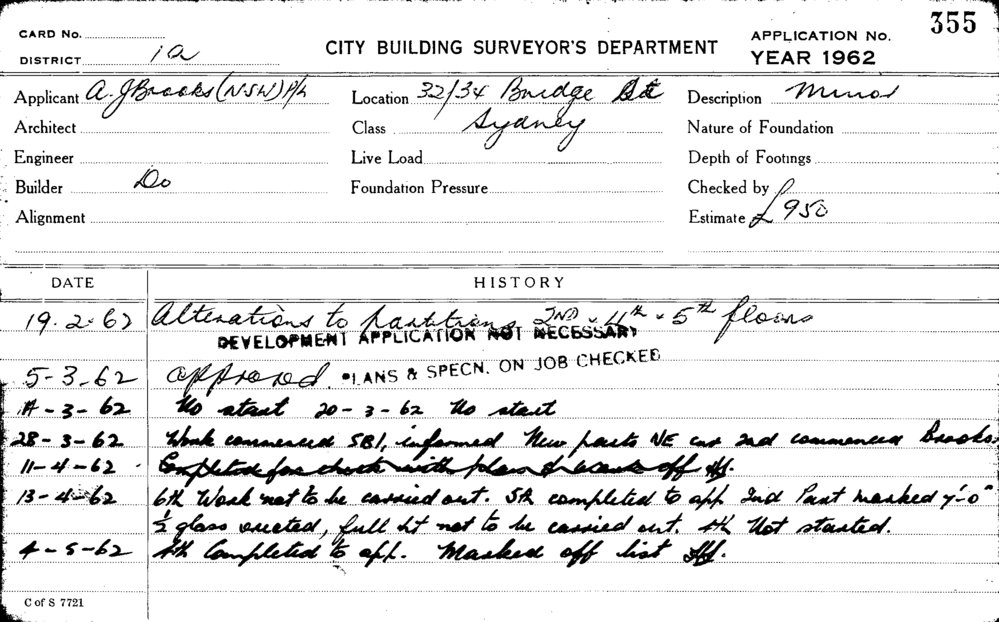 355
CARD No.
DISTRICT 1a
CITY BUILDING SURVEYOR'S DEPARTMENT
APPLICATION No.
YEAR 1962
Applicant A. J Brooks (NSW) P/L
Location 32/34 Bridge St
Sydney
Description Minor
Architect
Class
Nature of Foundation
Engineer
Live Load
Depth of Footings
Builder Do
Foundation Pressure
Checked by
Alignment
Estimate £950
DATE HISTORY
19.2.62 Alterations to partitions 2ND 4th 5th floors
DEVELOPMENT APPLICATION NOT NECESSARY
5-3-62 approved PLANS & SPECN. ON JOB CHECKED
-3-62 No start 20-3-62 No start
28-3-62 Work commenced SBI, informed New parts NE cnr 2nd commenced Brooks
11-4-62 Completed for check with plan off
13-4-62 6th Work not to be carried out. 5th completed to app 2nd Part marked 7'-0"
½ glass erected, full ht not to be carried out. 4th Not started.
4-5-62 4th Completed to app. Marked off list
C of S 7721